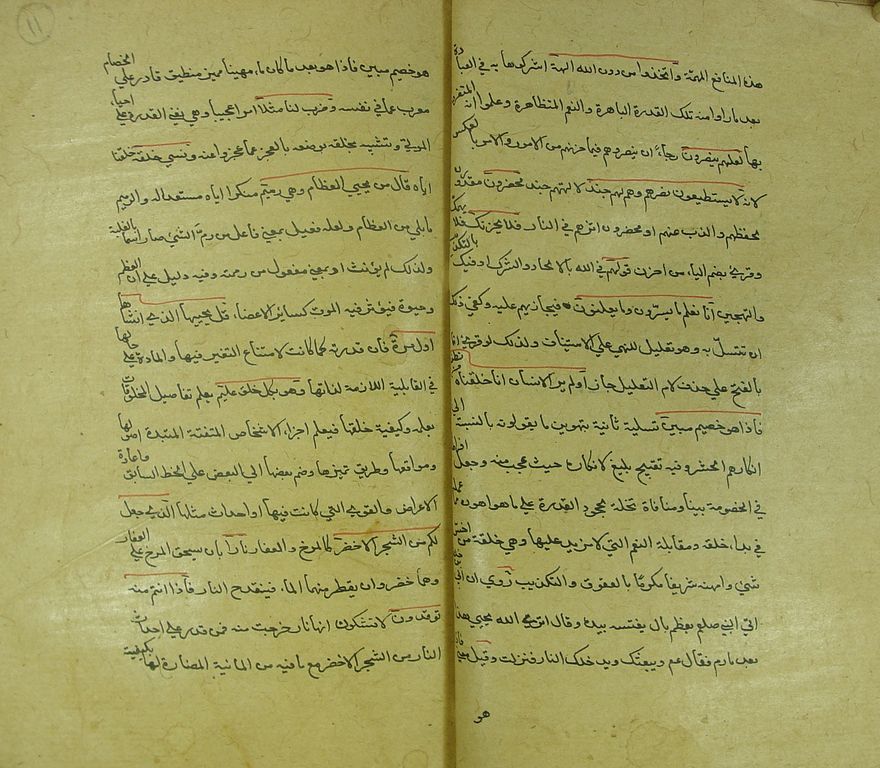 هذه المنافع المهمة واتخذوا من دون الله الهة اشركوها به في العبادة
بعد ما راوا منه تلك القدرة الباهرة والنعم المتظاهرة وعلموا انه المتفرد
بها لعلهم ينصرون رجاء ان ينصروهم فيما حزبهم من الامور والامر بالعكس
لانه لا يستطيعون نصرهم وهم لهم جند لالهتهم جند محضرون معدون
لحفظهم والذب عنهم او محضرون اثرهم في النار فلا يحزنك فلا يهمك
وقرئ بضم الياء من احزن قولهم في الله بالالحاد والشرك او فيك بالتكذيب
والتهجين انا نعلم ما يسرون وما يعلنون فيجازيهم عليه وكفى ذلك
ان تتسلى به وهو تعليل للنهي على الاستيناف ولذلك لو قرئ انا
بالفتح على حذف لام التعليل جاز اولم ير الانسان انا خلقناه من نطفة
فاذا هو خصيم مبين تسلية ثانية بتهوين ما يقولونه بالنسبة الى
انكارهم الحشر وفيه تقبيح بليغ لانكاره حيث عجب منه وجعله افراطا
في الخصومة بينا ومنافاة لجحود القدرة على ما هو اهون مما عمله
في بدء خلقه ومقابلة النعم التي لا مزيد عليها وهي خلقه من اخس
شئ وامهنه شريفا مكرما بالعقوق والتكذيب روي ان ابي بن خلف
اتى النبي صلعم بعظم بال يفتته بيده وقال اترى الله يحيي هذا
بعد ما رم فقال عم ويبعثك ويدخلك النار فنزلت وقيل معنى فاذا
هو
١١
هو خصيم مبين فاذا هو بعد ما كان ماء مهينا مميز منطيق قادر على الخصام
معرب عما في نفسه وضرب لنا مثلا امرا عجيبا وهي نفي القدرة على احياء
الموتى وتشبيه بخلقه بوصفه بالعجز عما عجزوا عنه ونسي خلقه خلقنا
اياه قال من يحيي العظام وهي رميم منكرا اياه مستبعدا له والرميم
ما بلي من العظام ولعله فعيل بمعنى فاعل من رم الشئ صار اسما بالغلبة
ولذلك لم يؤنث او بمعنى مفعول من رممته وفيه دليل على ان العظم
وحيوة فيؤثر فيه الموت كسائر الاعضاء قل يحييها الذي انشاها
اول مرة فان قدرته كما كانت لامتناع التغير فيها والمادة على حالها
في القابلية اللازمة لذاتها وهو بكل خلق عليم يعلم تفاصيل المخلوقات
بعلمه وكيفية خلقها فيعلم اجزاء الاشخاص المتفتتة المتبددة اصولها
ومواقعها وطريق تميزها وضم بعضها الى البعض على النمط السابق واعادة
الاعراض والقوى التي كانت فيها او احداث مثلها الذي جعل
لكم من الشجر الاخضر كالمرخ والعفار نارا بان يسحق المرخ على العفار
وهما خضراوان يقطر منهما الماء فينقدح النار فاذا انتم منه
توقدون لا تشكون انها نار خرجت منه فمن قدر على احداث
النار من الشجر الاخضر مع ما فيه من المائية المضادة لها بكيفية